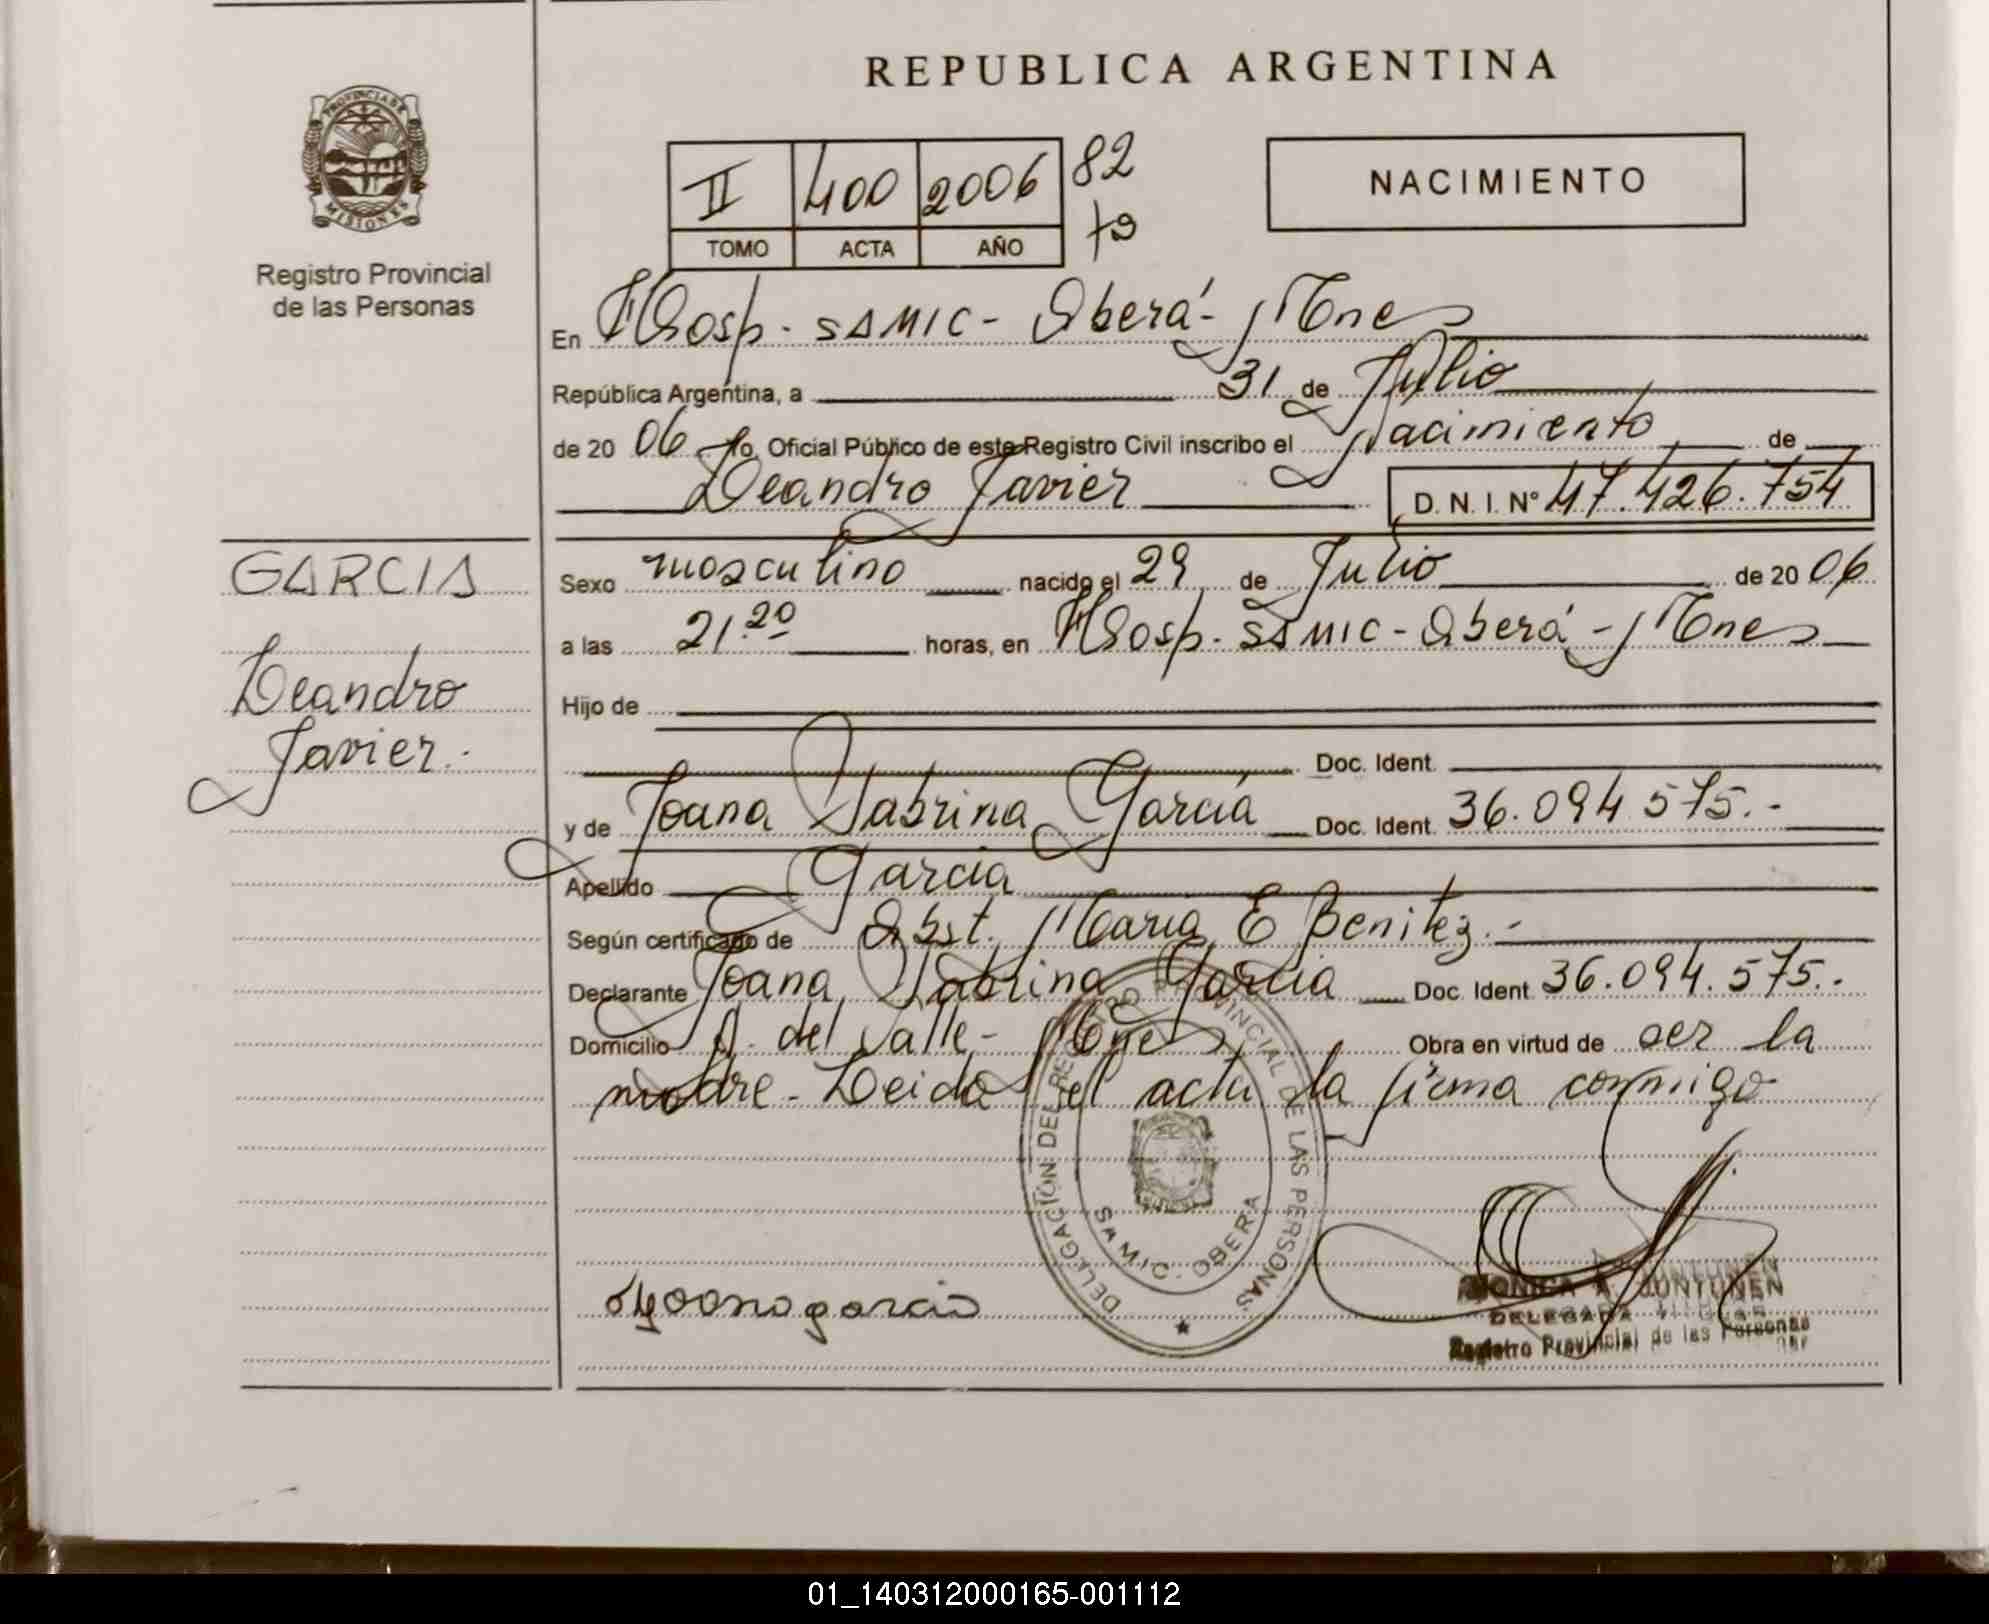 REPUBLICA ARGENTINA
PROVINCIA DE
MISIONES
Registro Provincial
de las Personas
II 400 2006 82
TOMO ACTA AÑO
NACIMIENTO
En Hosp. SAMIC - Oberá - Mnes
República Argentina, a 31 de Julio
de 20 06 Yo, Oficial Público de este Registro Civil inscribo el Nacimiento de
Leandro Javier D. N. I. Nº 47.426.754
GARCIA
Leandro
Javier.-
Sexo masculino nacido el 29 de Julio de 20 06
a las 21.20 horas, en Hosp. SAMIC - Oberá - Mnes
Hijo de
Doc. Ident.
y de Joana Sabrina García Doc. Ident. 36.094.575.-
Apellido García
Según certificado de Obst. María E Benitez.-
Declarante Joana Sabrina García Doc. Ident. 36.094.575.-
Domicilio A. del Valle - Mnes Obra en virtud de ser la
madre - Leida el acta la firma conmigo
DELEGACIÓN DEL REGISTRO PROVINCIAL DE LAS PERSONAS
SAMIC - OBERA
MONICA A. JUNTUNEN
DELEGADA
Registro Provincial de las Personas
01_140312000165-001112